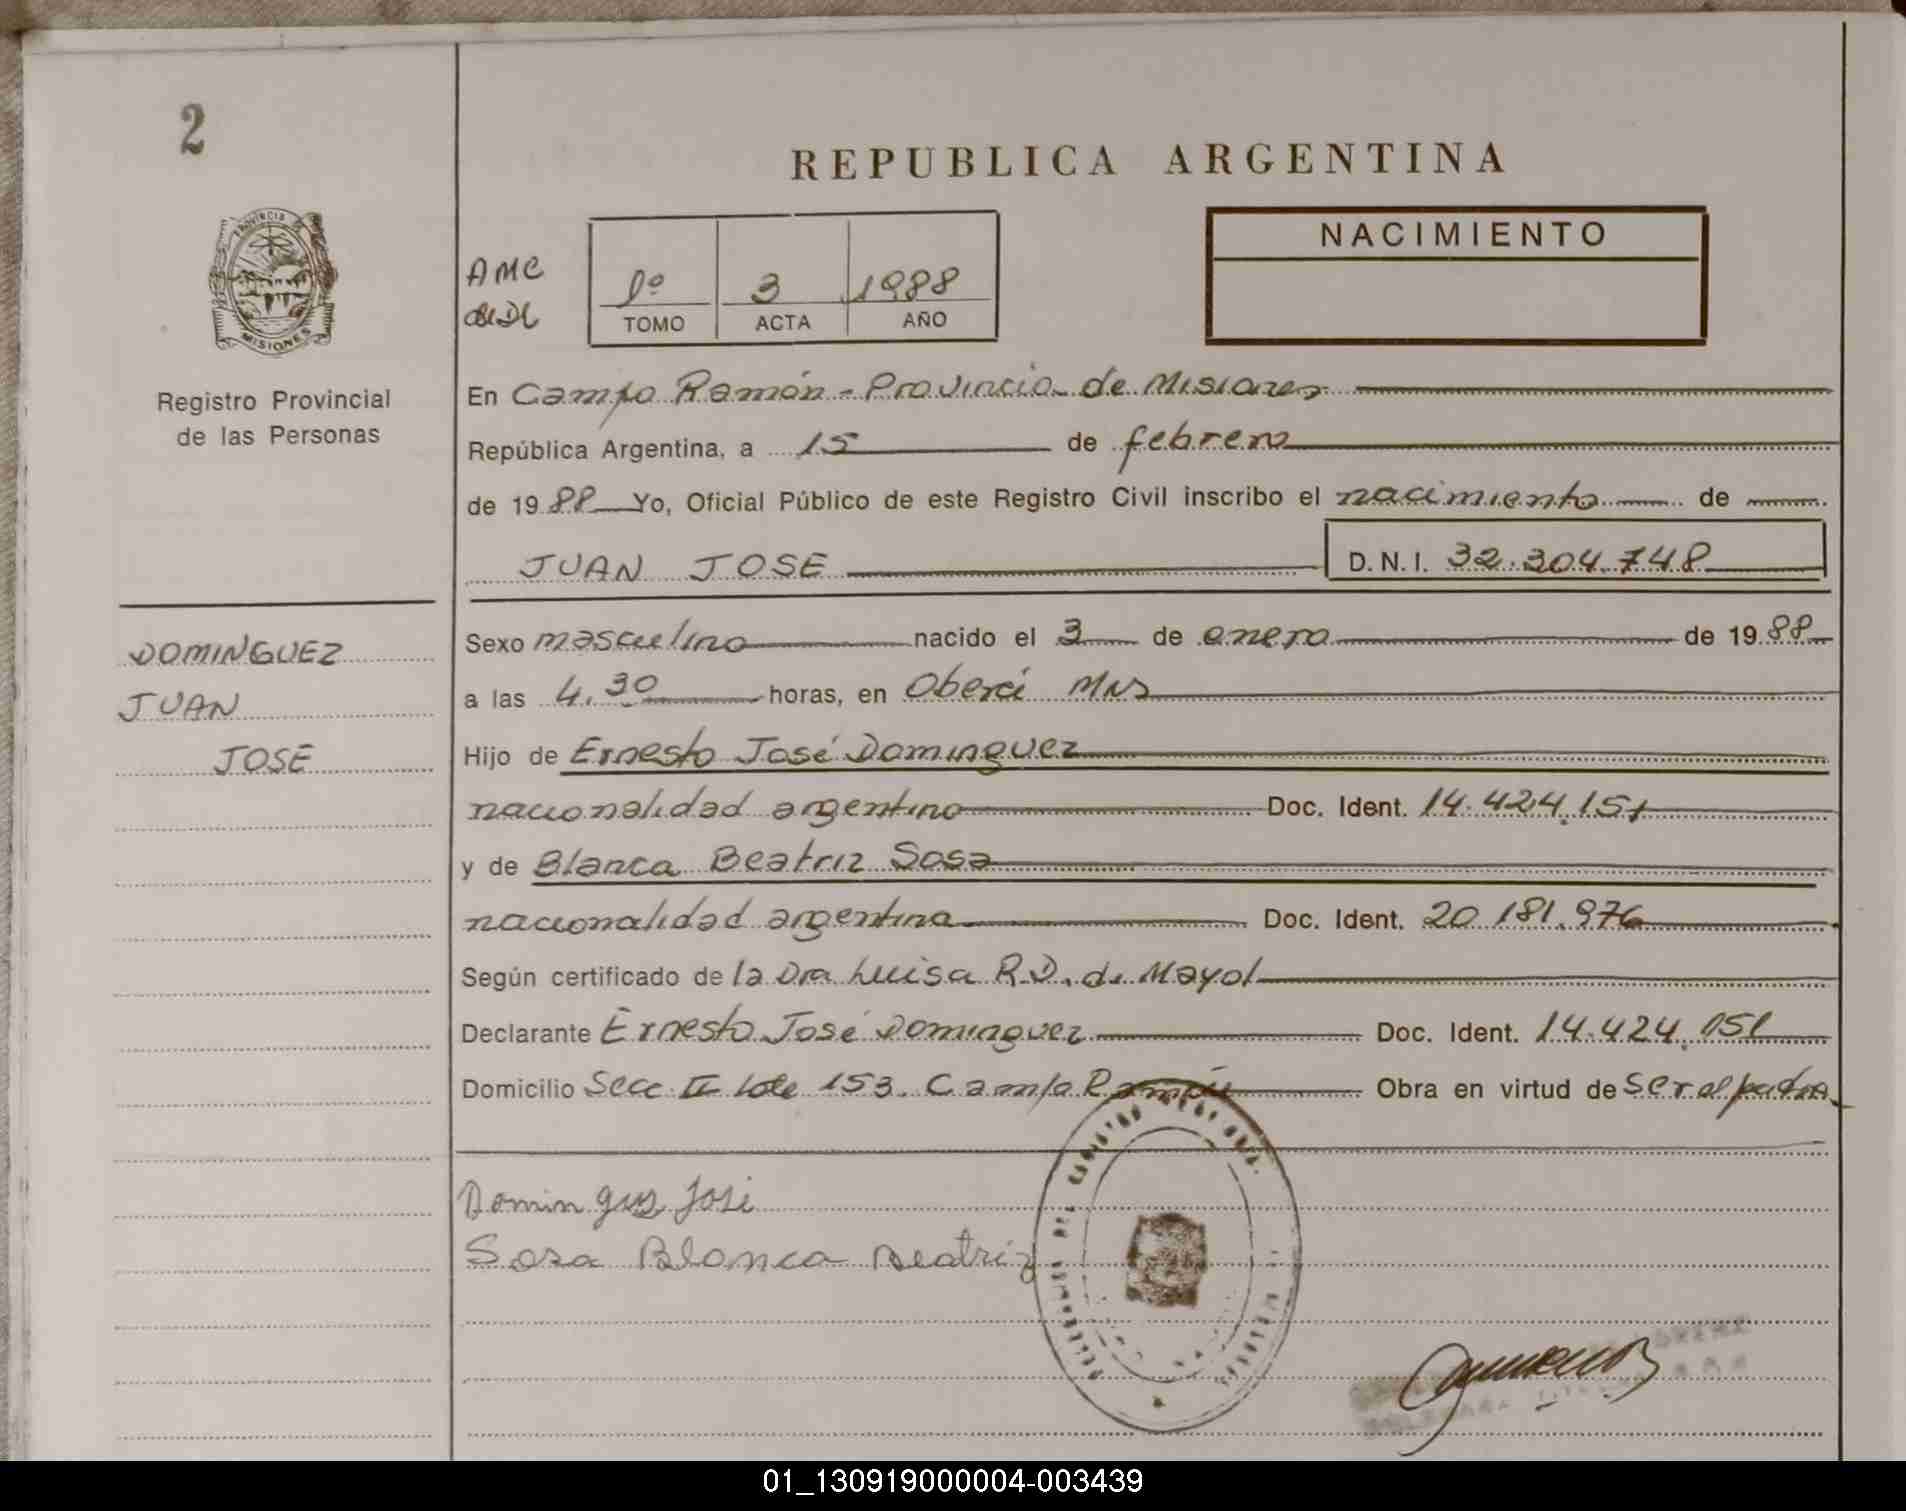 2
REPUBLICA ARGENTINA
PROVINCIA DE
MISIONES
Registro Provincial
de las Personas
AMC
1º 3 1988
TOMO ACTA AÑO
NACIMIENTO
En Campo Ramón - Provincia de Misiones
República Argentina, a 15 de febrero
de 1988 Yo, Oficial Público de este Registro Civil inscribo el nacimiento de
JUAN JOSE D.N.I. 32.304.748
DOMINGUEZ
JUAN
JOSE
Sexo masculino nacido el 3 de enero de 1988
a las 4.30 horas, en Oberá Mns
Hijo de Ernesto José Dominguez
nacionalidad argentino Doc. Ident. 14.424.151
y de Blanca Beatriz Sosa
nacionalidad argentina Doc. Ident. 20.181.976
Según certificado de la Dra Luisa R.D. de Mayol
Declarante Ernesto José Dominguez Doc. Ident. 14.424.051
Domicilio Secc II Lote 153. Campo Ramón Obra en virtud de ser el padre
Domin guz José
Sosa Blanca Beatriz
01_130919000004-003439